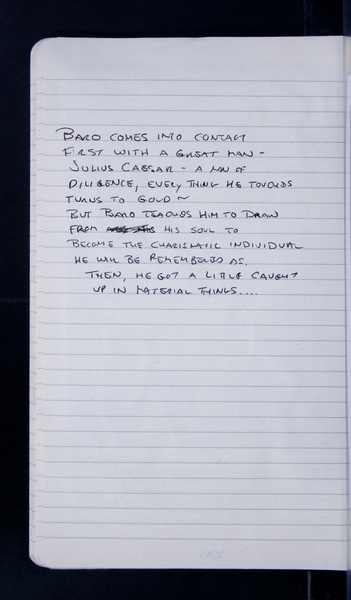 BARD COMES INTO CONTACT
FIRST WITH A GREAT MAN -
JULIUS CAESAR - A MAN OF
DILIGENCE, EVERY THING HE TOUCHES
TURNS TO GOLD ~
BUT BARD TEACHES HIM TO DRAW
FROM HIS SOUL TO
BECOME THE CHARISMATIC INDIVIDUAL
HE WILL BE REMEMBERED AS.
THEN, HE GOT A LITTLE CAUGHT
UP IN MATERIAL THINGS....